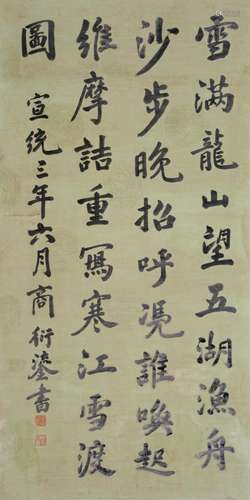 雪满龍山望五湖漁舟
沙步晚招呼凭誰喚起
維摩詰重寫寒江雪渡
圖
宣統三年六月商衍鎏書